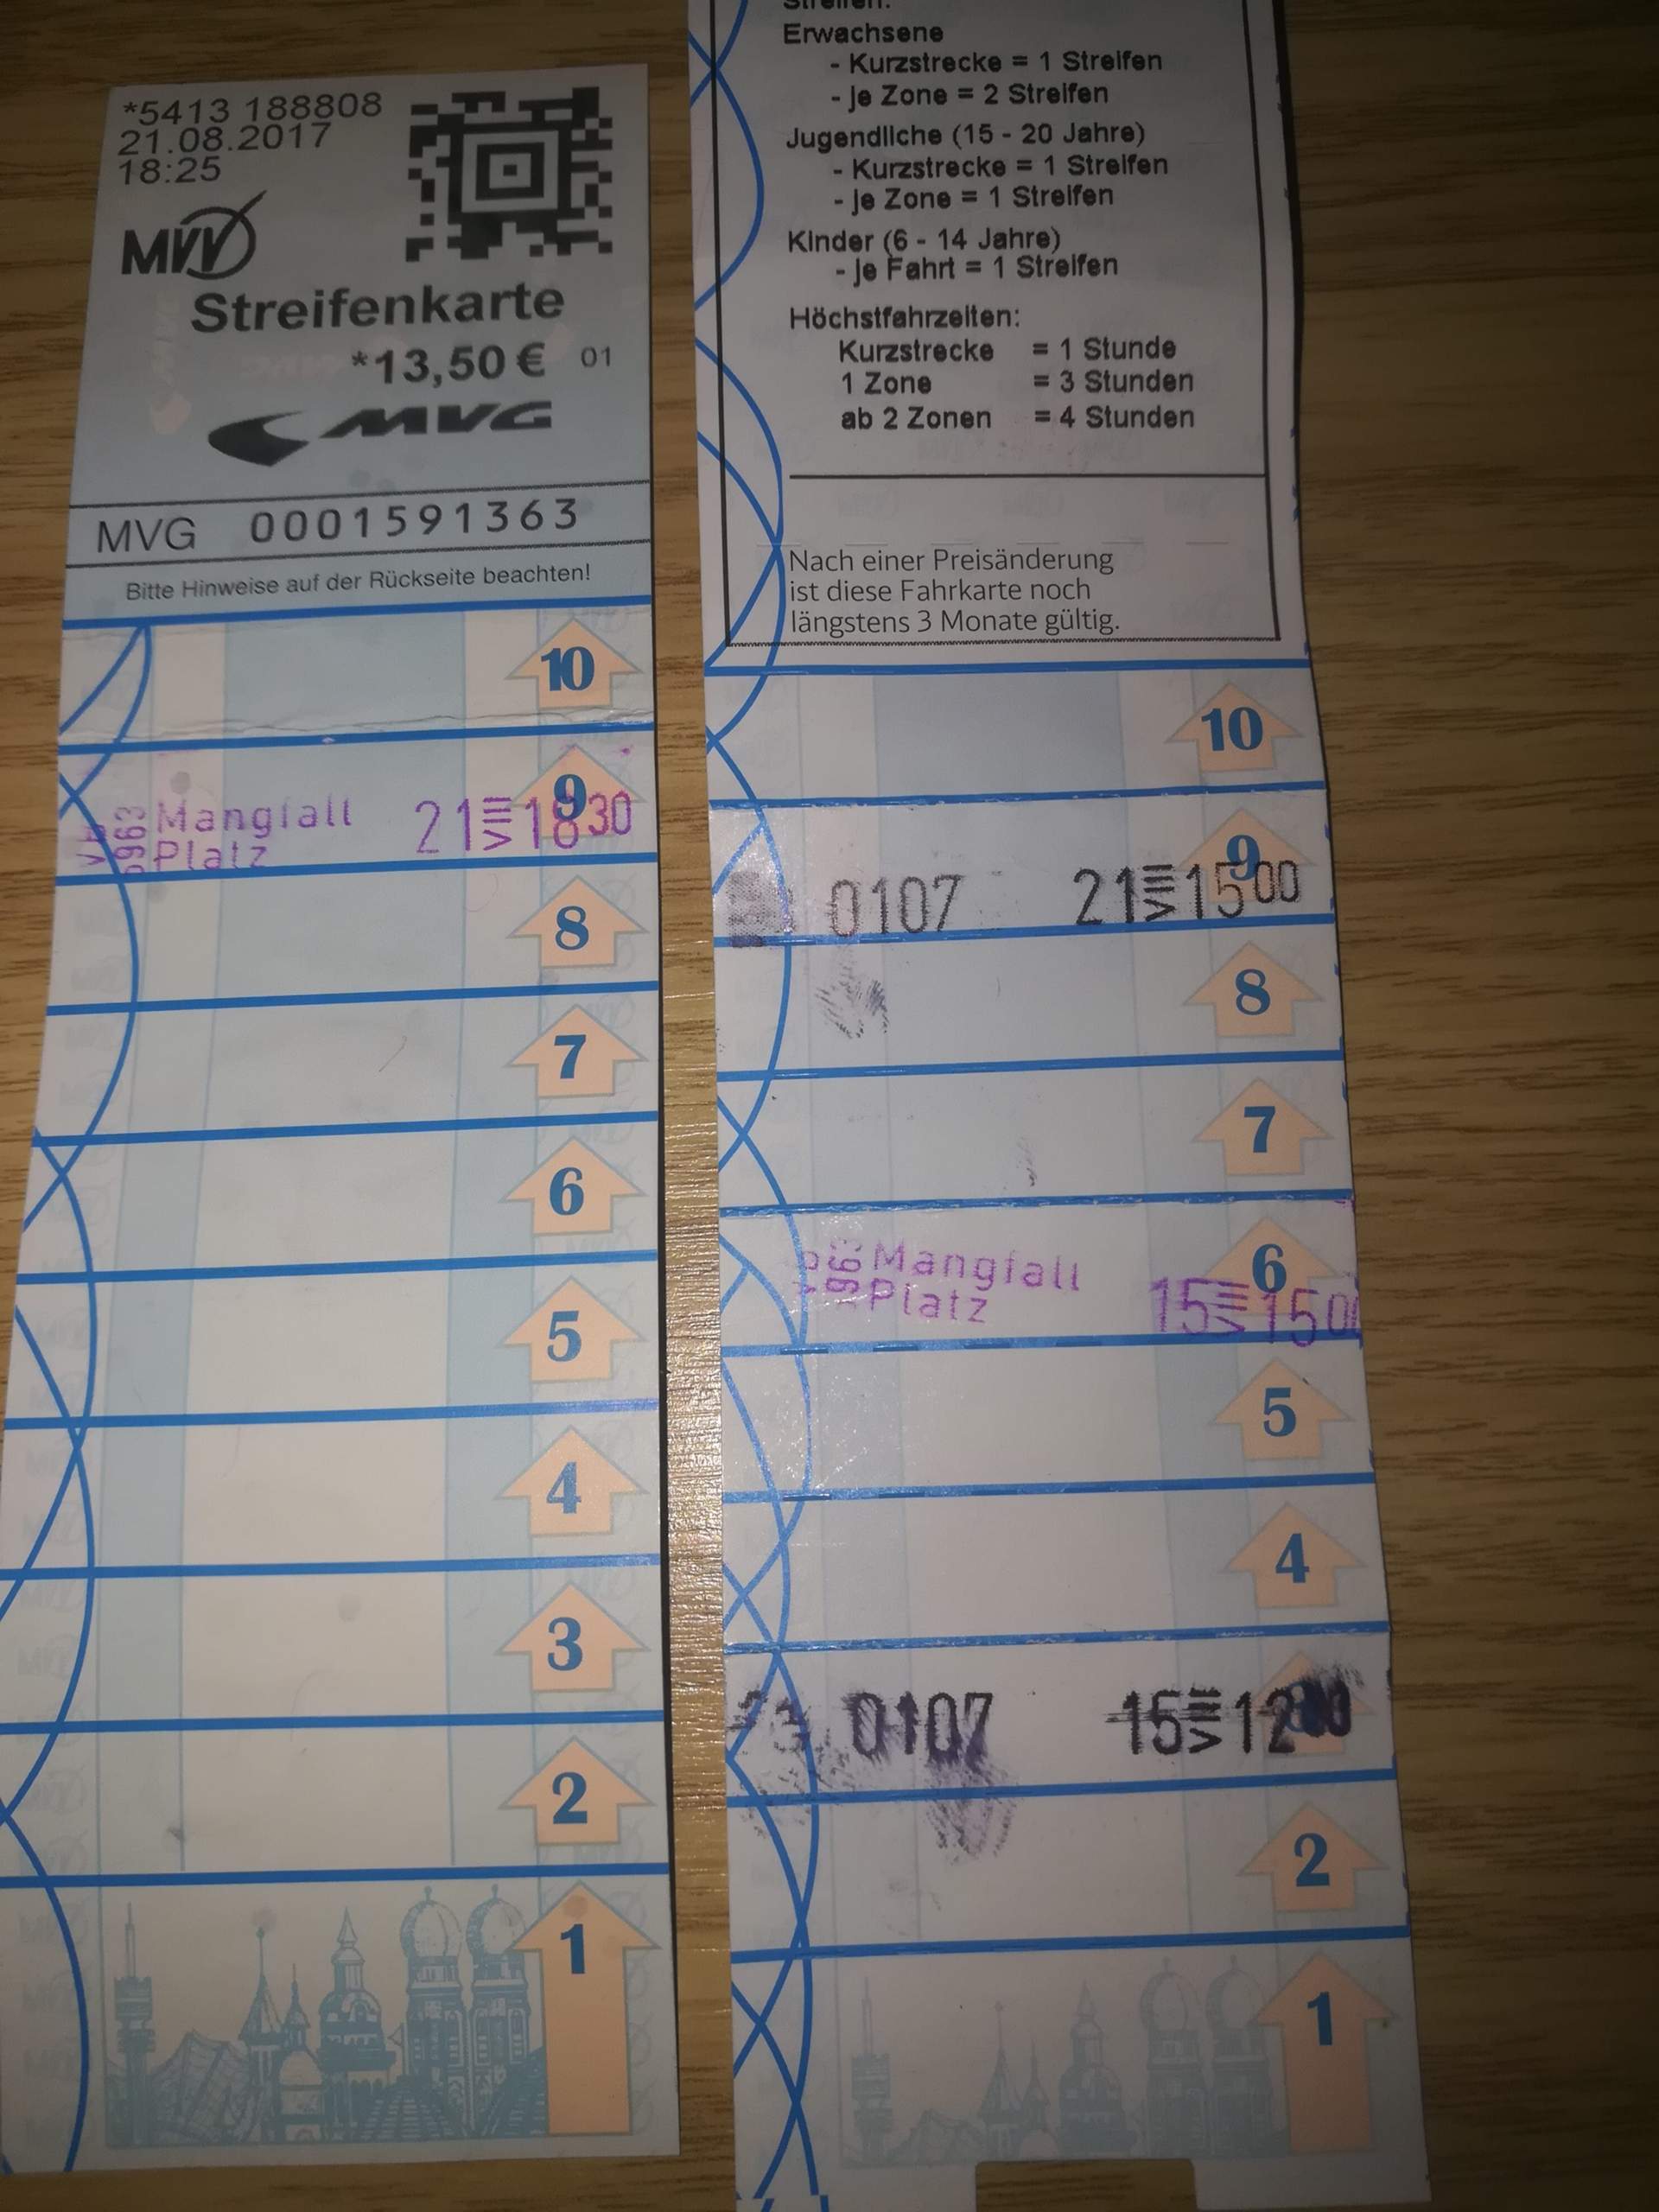 *5413 188808
21.08.2017
18:25
MVV
Streifenkarte
*13,50 € 01
MVG
MVG 0001591363
Bitte Hinweise auf der Rückseite beachten!
10
9
Mangfall
Platz
21 VIII 18 30
8
7
6
5
4
3
2
1
Streifen:
Erwachsene
- Kurzstrecke = 1 Streifen
- je Zone = 2 Streifen
Jugendliche (15 - 20 Jahre)
- Kurzstrecke = 1 Streifen
- je Zone = 1 Streifen
Kinder (6 - 14 Jahre)
- je Fahrt = 1 Streifen
Höchstfahrzeiten:
Kurzstrecke = 1 Stunde
1 Zone = 3 Stunden
ab 2 Zonen = 4 Stunden
Nach einer Preisänderung
ist diese Fahrkarte noch
längstens 3 Monate gültig.
10
9
0107 21 VIII 15 00
8
7
6
Mangfall
Platz
15 VIII 15 0
5
4
0107 15 VIII 12
2
1